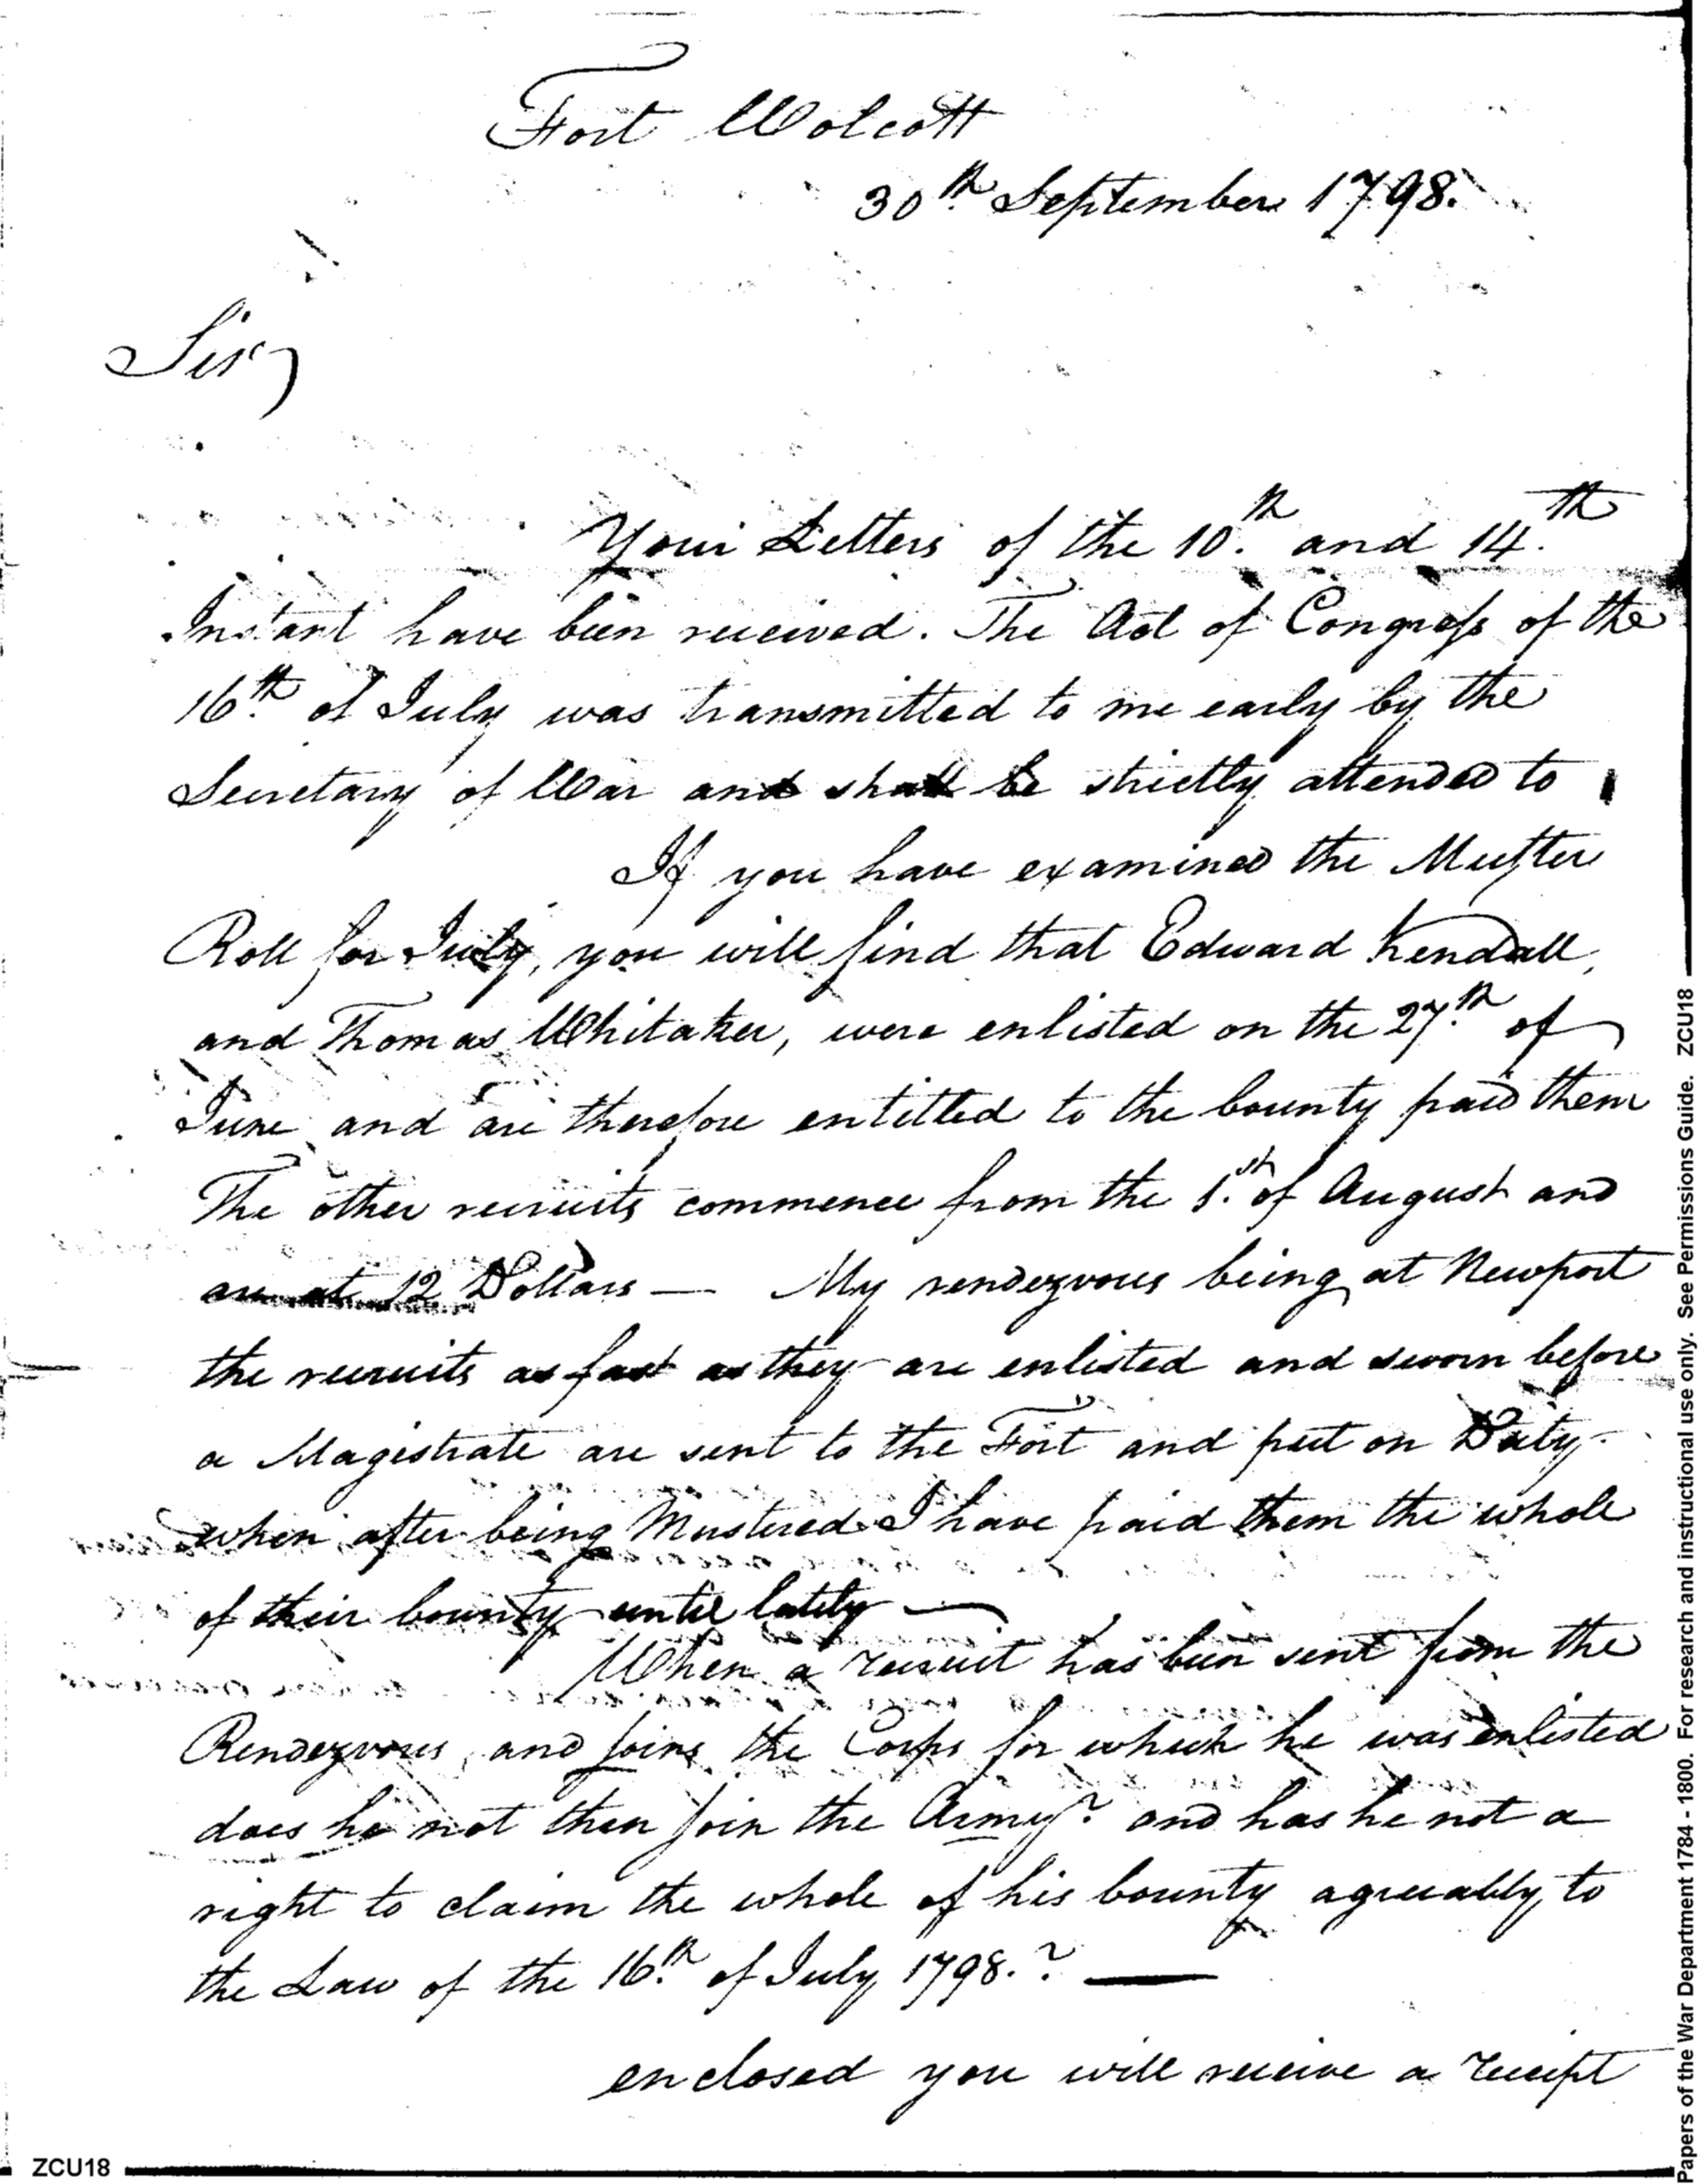 Fort Wolcott
30th September 1798.
Sir,
Your Letters of the 10th and 14th
Instant have been received. The Act of Congress of the
16th of July was transmitted to me early by the
Secretary of War and shall be strictly attended to
If you have examined the Muster
Roll for July, you will find that Edward Kendall,
and Thomas Whitaker, were enlisted on the 27th of
June and are therefore entitled to the bounty paid them
The other recruits commence from the 1st of August and
are at 12 Dollars — My rendezvous being at Newport
the recruits as fast as they are enlisted and sworn before
a Magistrate are sent to the Fort and put on Duty
when after being Mustered I have paid them the whole
of their bounty until lately —
When a recruit has been sent from the
Rendezvous, and joins the Corps for which he was enlisted
does he not then join the Army? and has he not a
right to claim the whole of his bounty agreeably to
the Law of the 16th of July 1798.? —
enclosed you will receive a receipt
ZCU18
Papers of the War Department 1784 - 1800. For research and instructional use only. See Permissions Guide. ZCU18